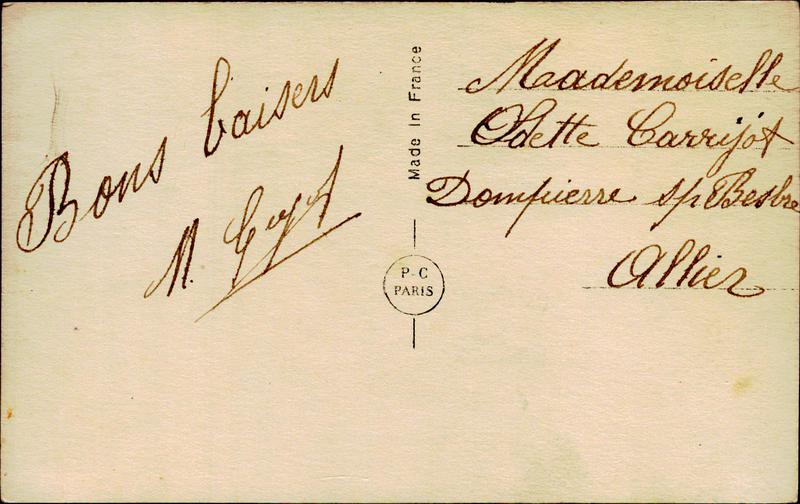 Bons baisers
M. Guyot
Made in France
P-C
PARIS
Mademoiselle
Odette Carrijot
Dompierre s/p Besbre
Allier